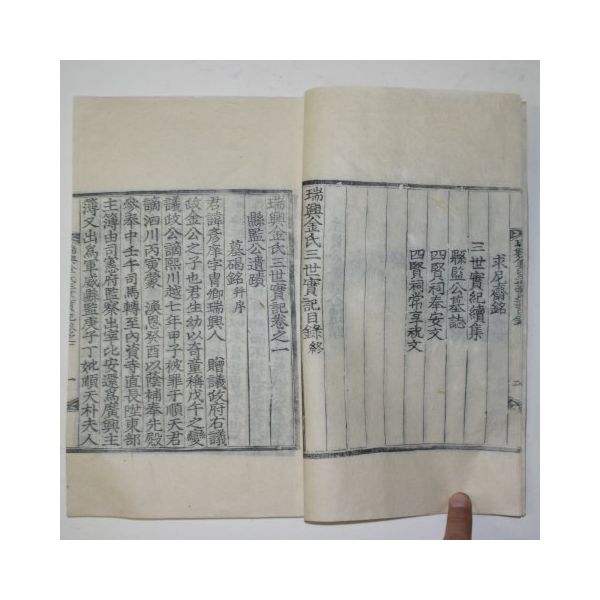 求尼齋銘
三世實紀續集
縣監公墓誌
四賢祠奉安文
四賢祠常享祝文
瑞興金氏三世實記目錄終
瑞興金氏三世實記卷之一
縣監公遺蹟
墓碣銘 幷序
君諱彦庠字胄卿瑞興人 贈議政府右議
政金公之子也君生幼以奇童稱戊午之變
議政公謫熙川越七年甲子被罪于順天君
謫泗川丙寅蒙 渙恩癸酉以蔭補奉先殿
參奉中壬午司馬轉至內資寺直長陞東部
主簿由司憲府監察出宰比安還爲廣興主
簿又出爲軍威縣監庚子丁妣順天朴夫人